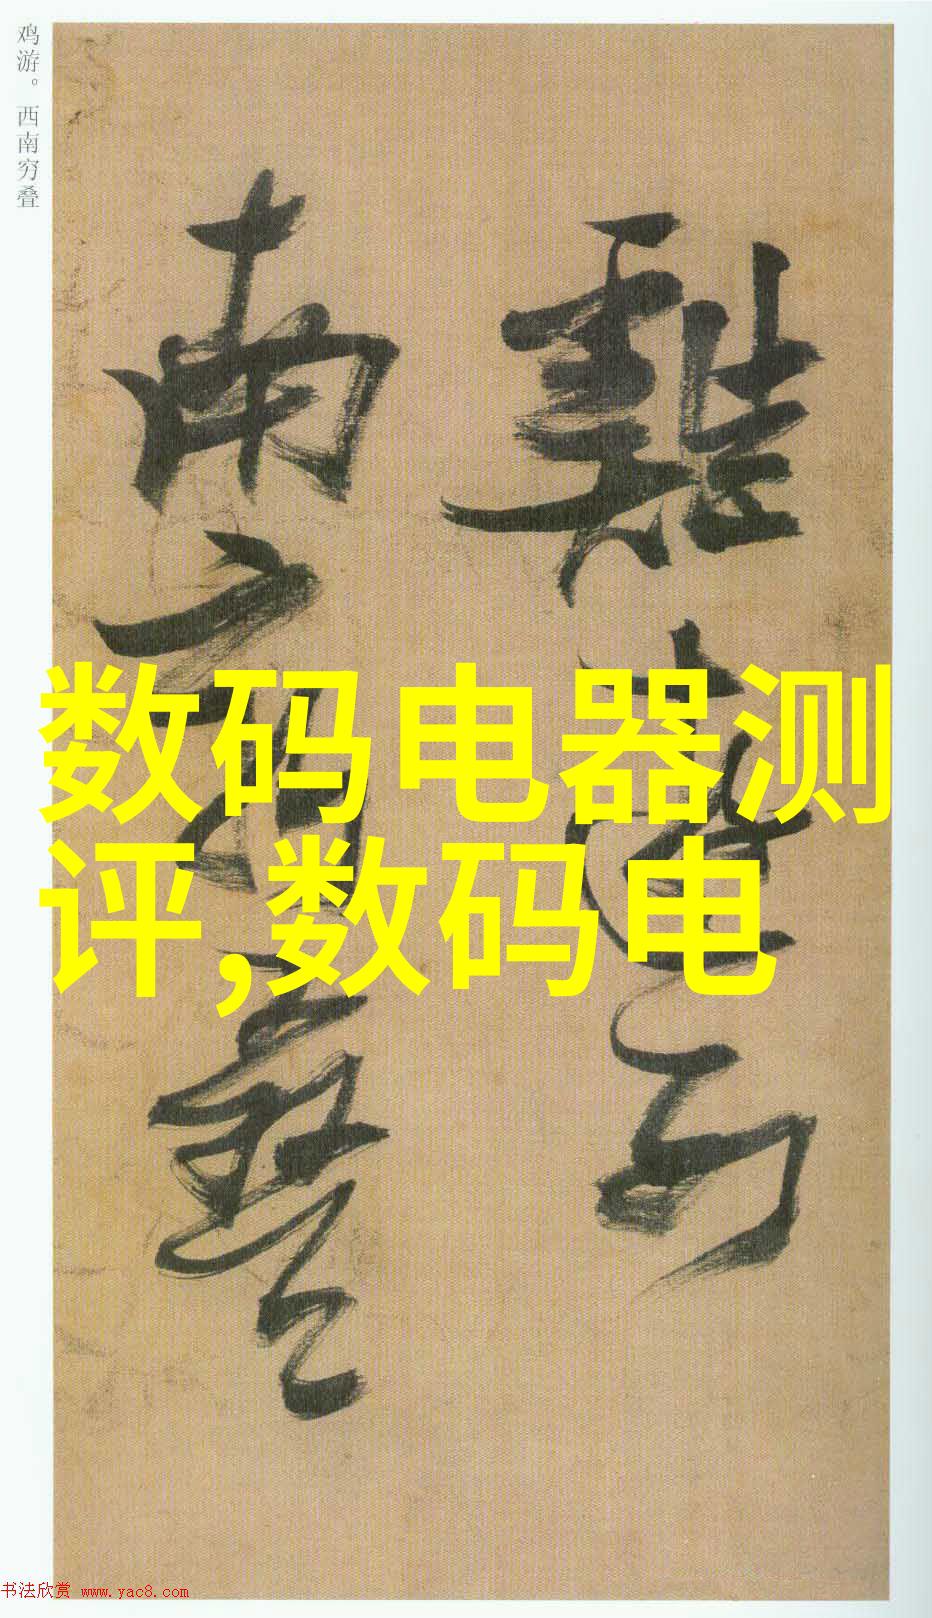 鸡游。西南穷叠
雞遊西
南窮疊
数码电器测
评,数码电
书法欣赏 www.yac8.com